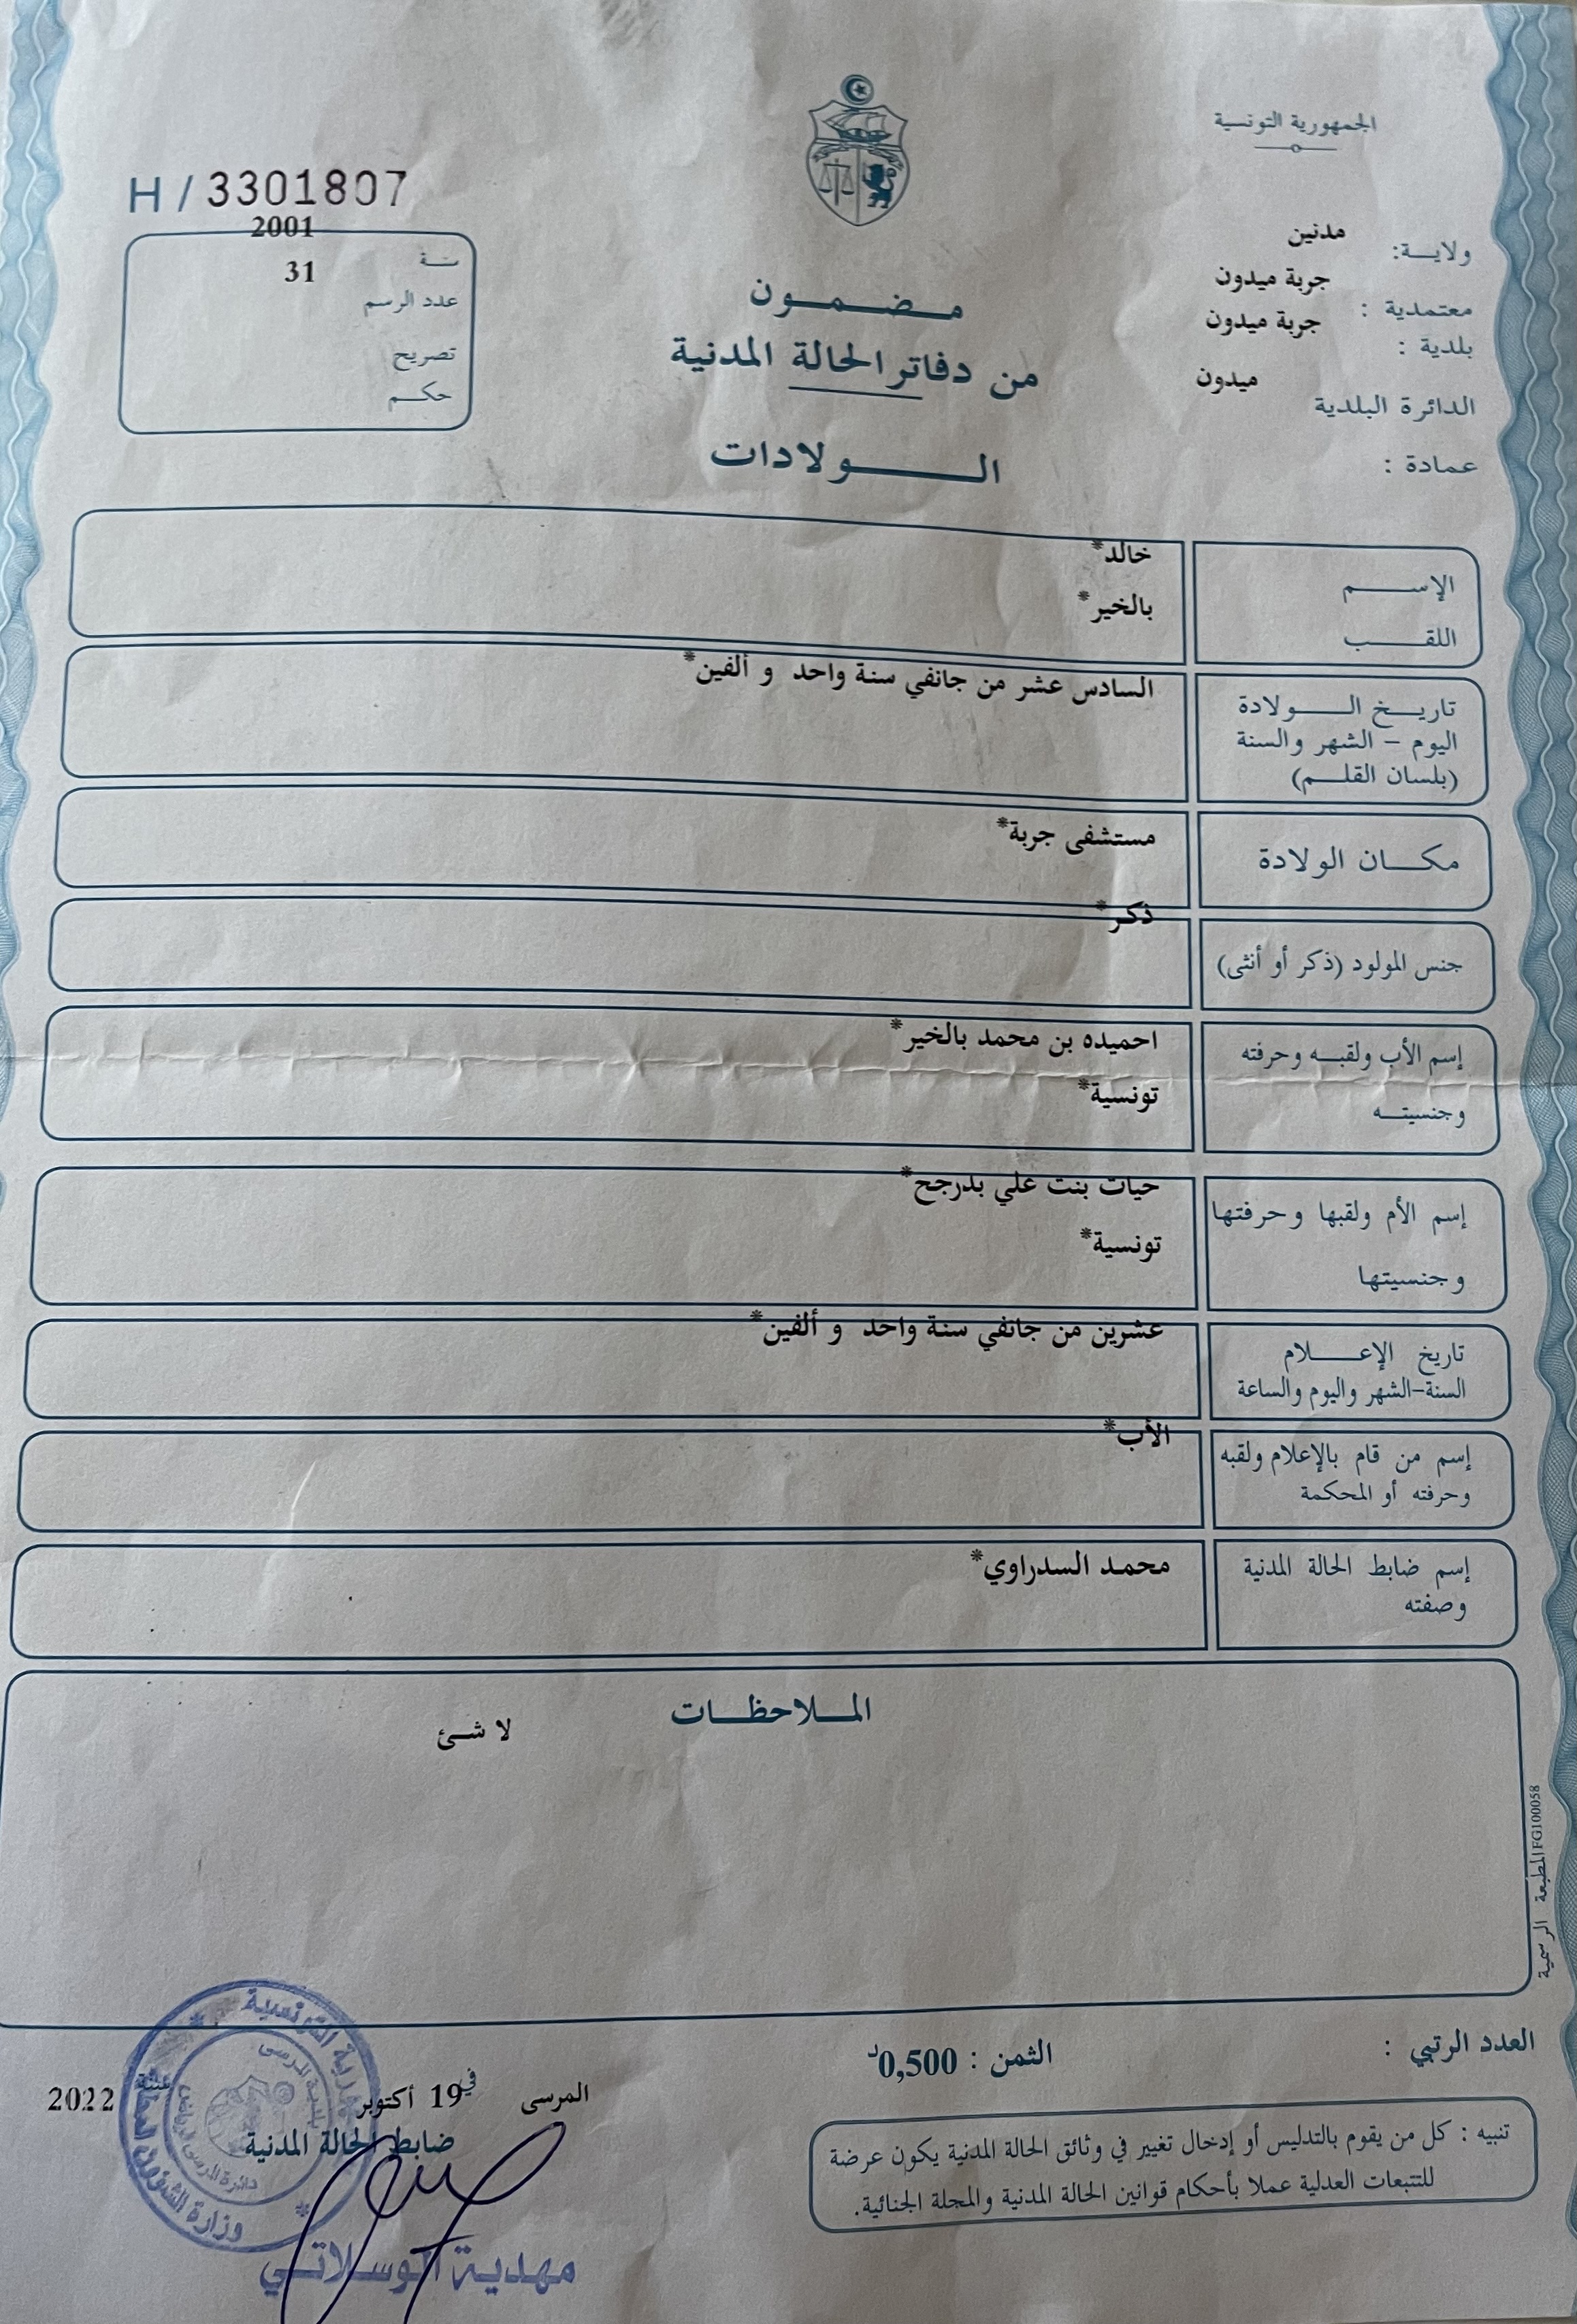 الجمهورية التونسية
ولايـــة: مدنين
معتمدية : جربة ميدون
بلدية : جربة ميدون
الدائرة البلدية ميدون
عمادة :
H / 3301807
سنـــة 2001
عدد الرسم 31
تصريح
حكــم
مــضــمــون
من دفاتر الحالة المدنية
الـــولادات
الإســـم خالد*
اللقـــب بالخير*
تاريــخ الـــولادة السادس عشر من جانفي سنة واحد و ألفين*
اليوم – الشهر والسنة
(بلسان القلــم)
مكـــان الولادة مستشفى جربة*
جنس المولود (ذكر أو أنثى) ذكر*
إسم الأب ولقبــه وحرفته احميده بن محمد بالخير*
وجنسيتــه تونسية*
إسم الأم ولقبها وحرفتها حيات بنت علي بدرجح*
وجنسيتها تونسية*
تاريخ الإعـــلام عشرين من جانفي سنة واحد و ألفين*
السنة-الشهر واليوم والساعة
إسم من قام بالإعلام ولقبه الأب*
وحرفته أو المحكمة
إسم ضابط الحالة المدنية محمد السدراوي*
وصفته
المــلاحظــات
لا شئ
المطبعة الرسمية FG100058
العدد الرتبي :
الثمن : 0,500د
تنبيه : كل من يقوم بالتدليس أو إدخال تغيير في وثائق الحالة المدنية يكون عرضة
للتتبعات العدلية عملا بأحكام قوانين الحالة المدنية والمجلة الجنائية.
المرسى في 19 أكتوبر سنة 2022
ضابط الحالة المدنية
مهدية الوسلاتي